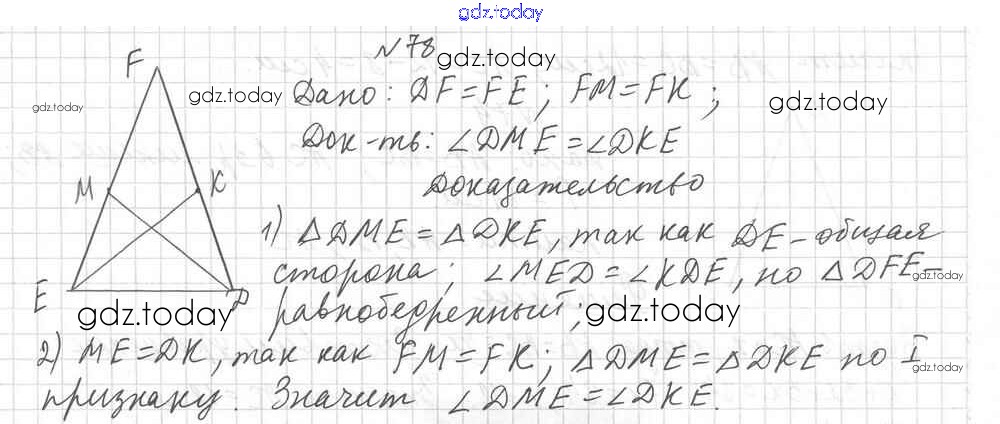 gdz.today
№78
gdz.today
F
gdz.today
gdz.today
Дано: DF = FE; FM = FK;
gdz.today
Док-ть: ∠DME = ∠DKE
M
K
Доказательство
1) △DME = △DKE, так как DE - общая
сторона; ∠MED = ∠KDE, по △DFE -
gdz.today
E
D
gdz.today
равнобедренный;
gdz.today
2) ME = DK, так как FM = FK; △DME = △DKE по I
gdz.today
признаку. Значит ∠DME = ∠DKE.